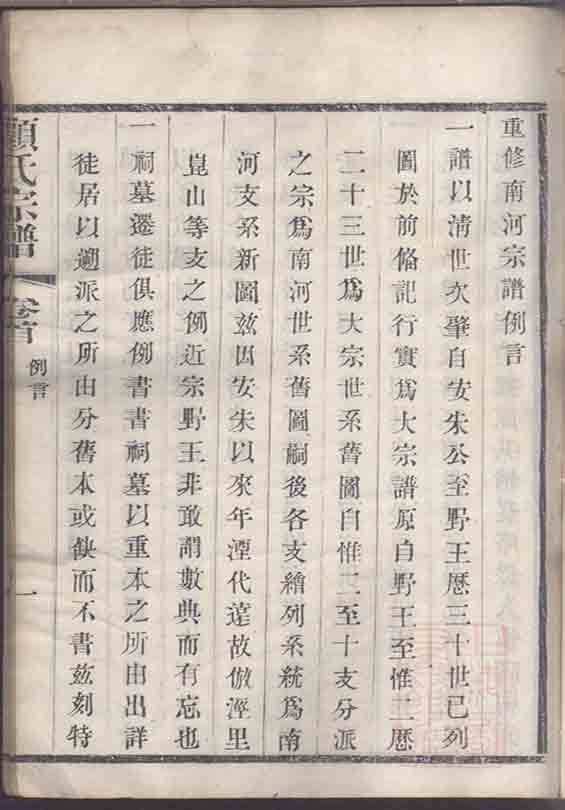 重修南河宗譜例言
一譜以清世次肇自安朱公至野王厯三十世已列
圖於前脩記行實為大宗譜原自野王至惟二厯
二十三世為大宗世系舊圖自惟二至十支分派
之宗為南河世系舊圖嗣後各支繪列系統為南
河支系新圖茲因安朱以來年湮代遠故倣溼里
崑山等支之例近宗野王非敢謂數典而有忘也
一祠墓遷徒俱應例書書祠墓以重本之所由出詳
徒居以遡派之所由分舊本或缺而不書茲刻特
顧氏宗譜 卷首 例言 一